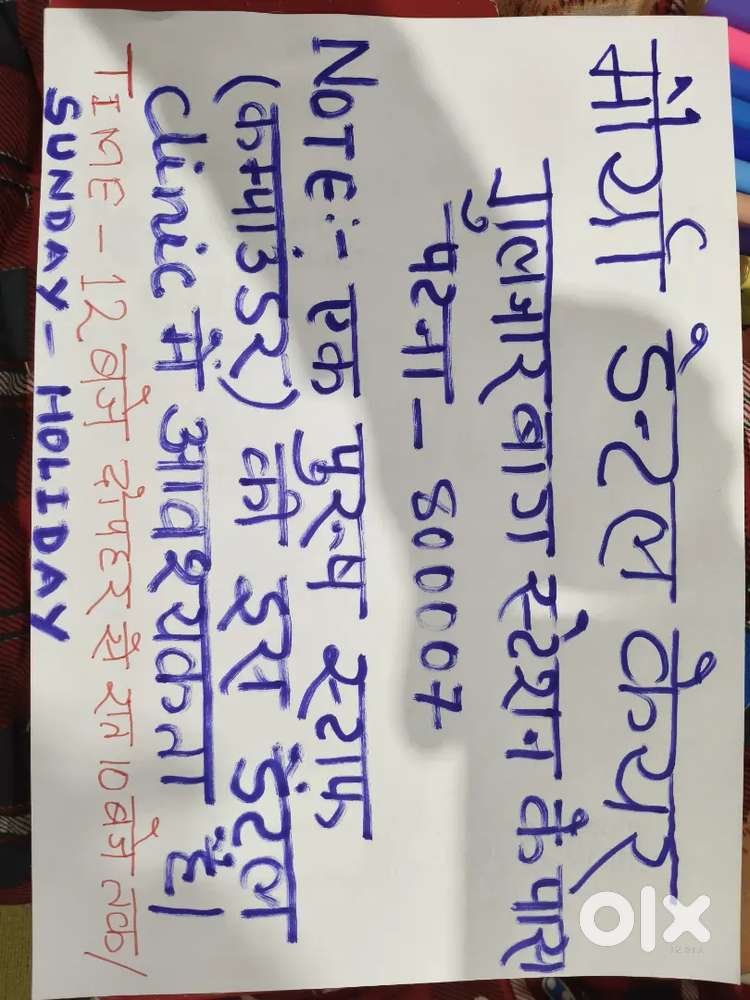 मौर्या डेन्टल केयर
गुलजारबाग स्टेशन के पास
पटना - 800007
NOTE:- एक पुरूष स्टाफ
(कम्पाउंडर) की इस डेंटल
clinic में आवश्यकता है।
TIME - 12 बजे दोपहर से रात 10 बजे तक/
SUNDAY - HOLIDAY
olx